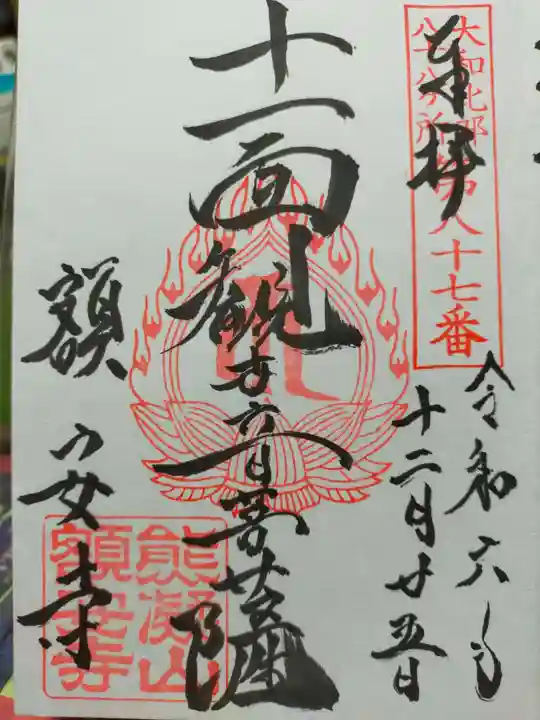 奉拝
大和北部
八十八ヶ所第八十七番
令和六年
十二月廿五日
十一面観世音菩薩
額安寺
熊凝山
額安寺